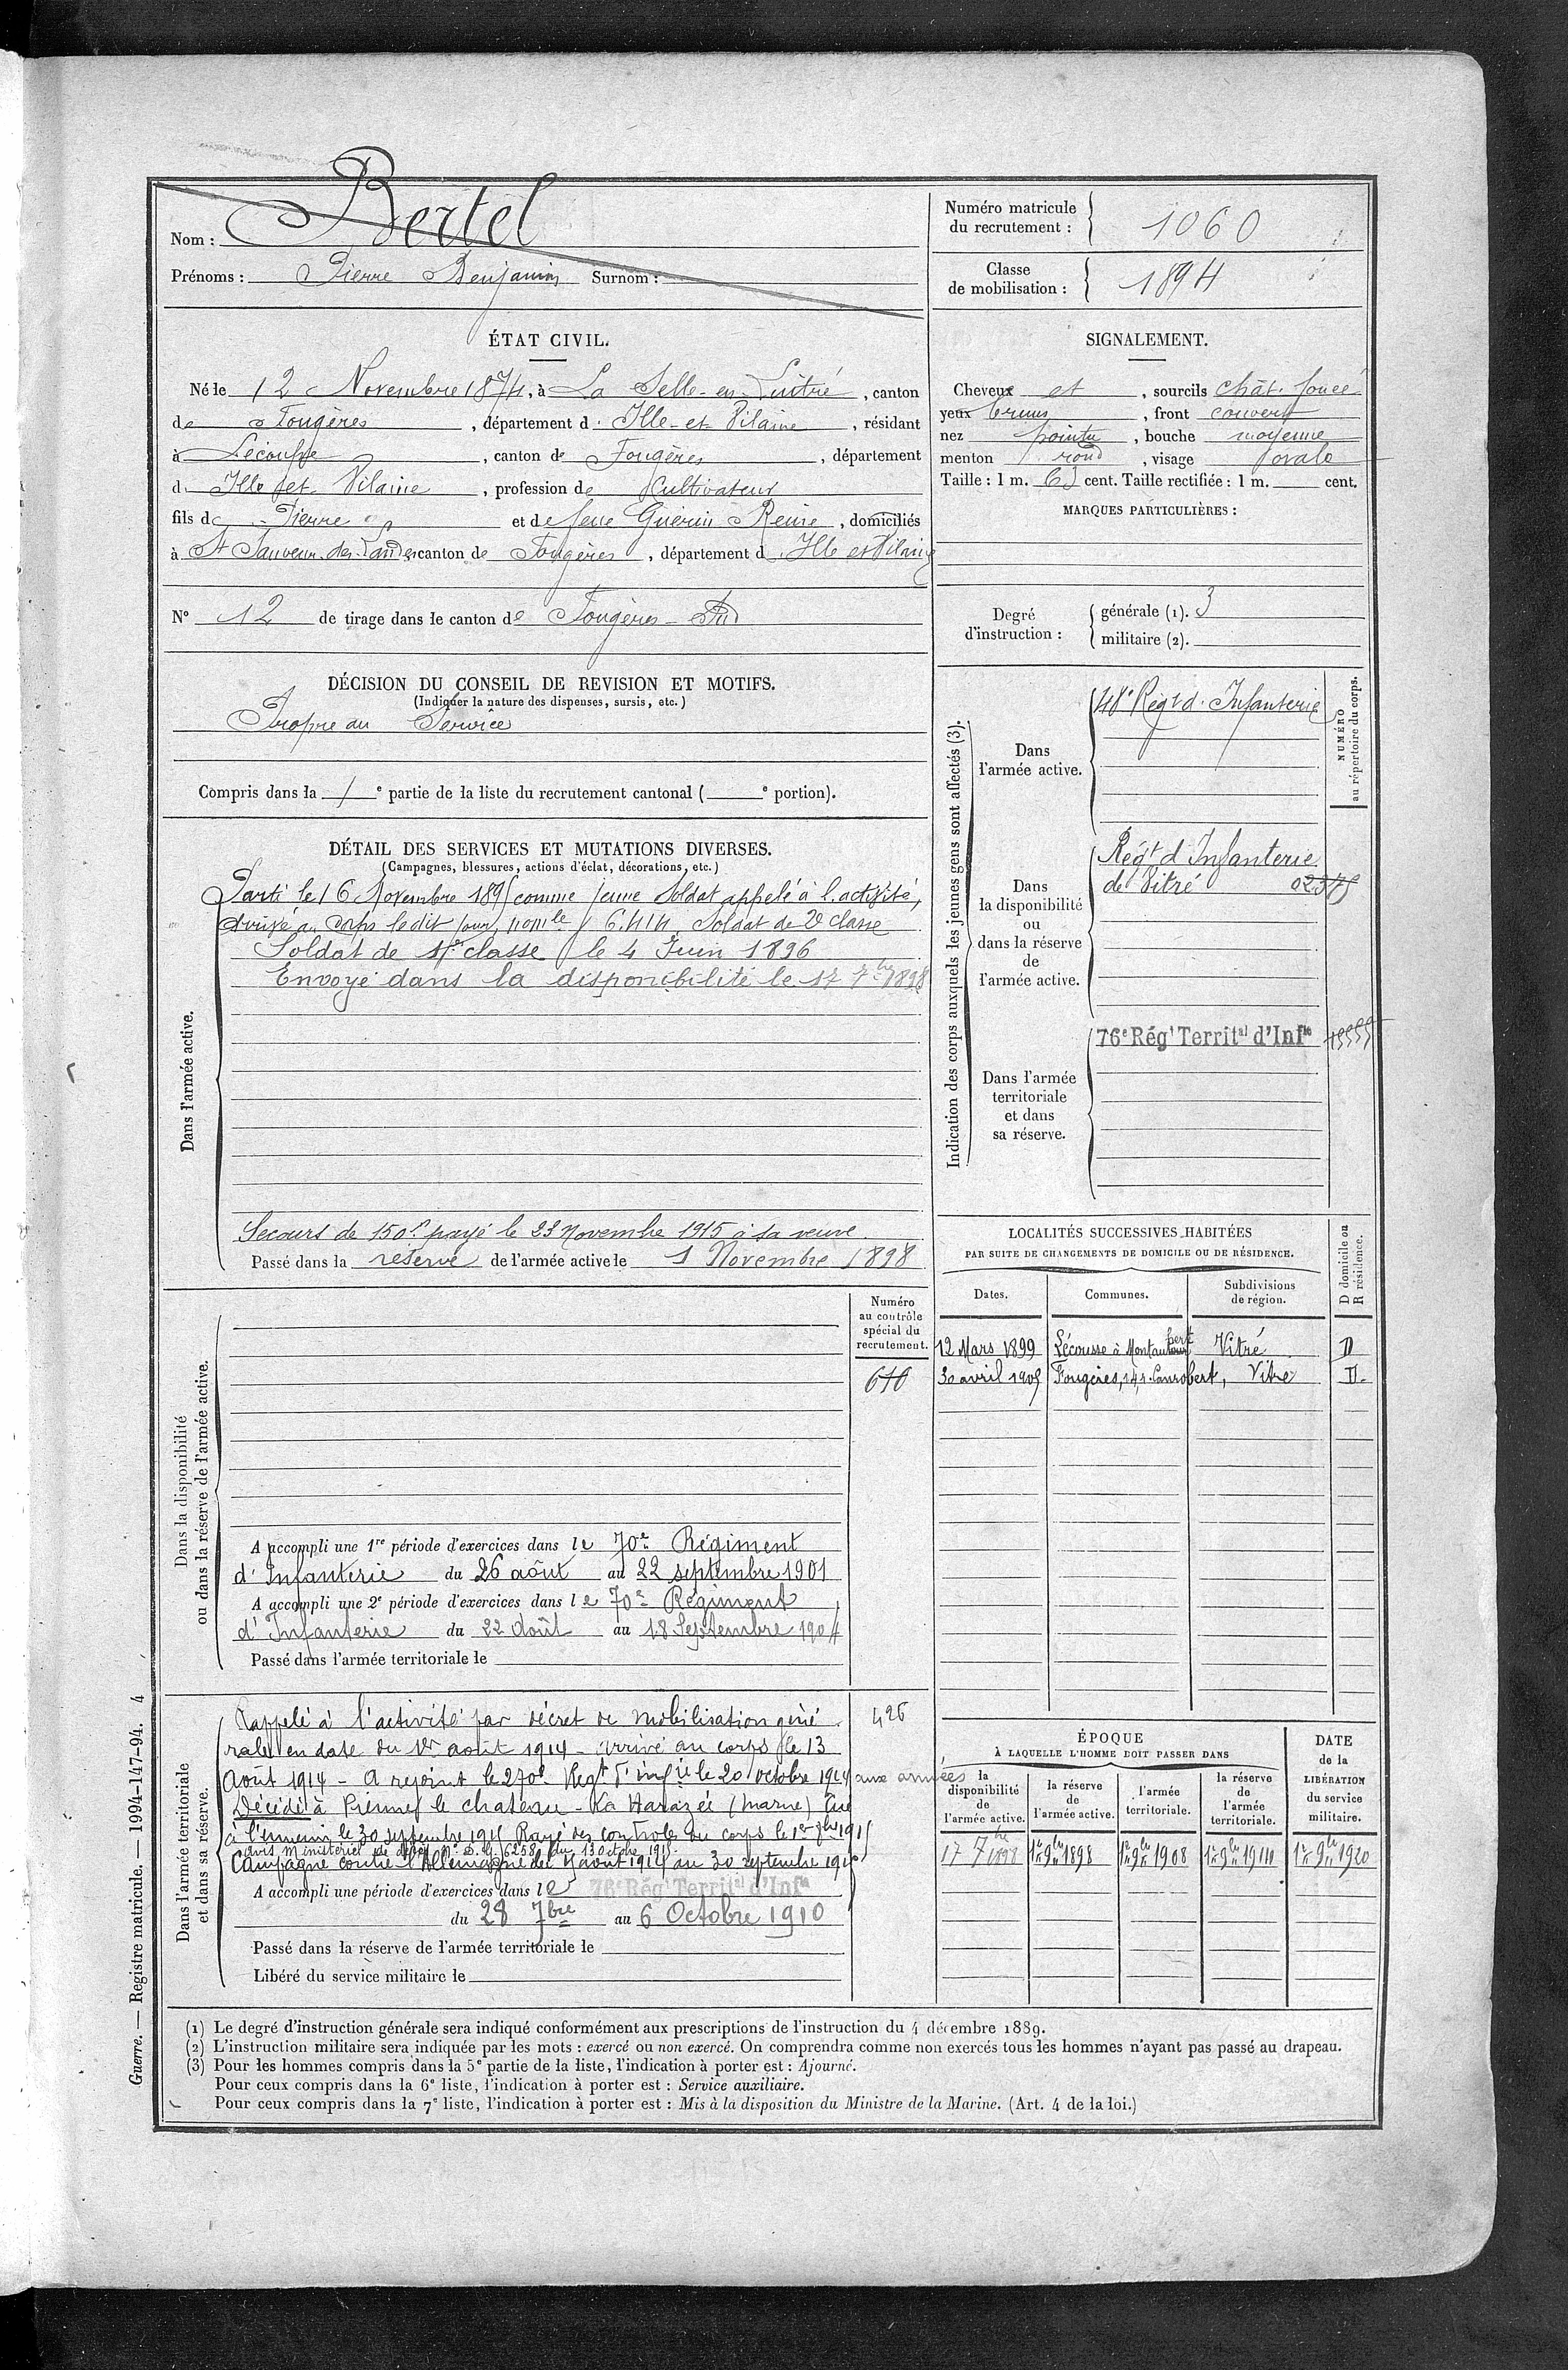 Nom : Bertel
Prénoms : Pierre Benjamin Surnom :
Numéro matricule
du recrutement : 1060
Classe
de mobilisation : 1894
ÉTAT CIVIL.
Né le 12 Novembre 1874, à La Selle-en-Luitré, canton
de Fougères, département d. Ille-et-Vilaine, résidant
à Lécousse, canton de Fougères, département
d. Ille et Vilaine, profession de Cultivateur
fils de Pierre et de feue Guérin Reine, domiciliés
à St Sauveur-des-Landes canton de Fougères, département d. Ille et Vilaine
N° 12 de tirage dans le canton de Fougères-Sud
DÉCISION DU CONSEIL DE REVISION ET MOTIFS.
(Indiquer la nature des dispenses, sursis, etc.)
Propre au Service
Compris dans la 1e partie de la liste du recrutement cantonal ( e portion).
SIGNALEMENT.
Cheveux et, sourcils chât. foncé
yeux bruns, front couvert
nez pointu, bouche moyenne
menton rond, visage ovale
Taille : 1 m. 63 cent. Taille rectifiée : 1 m. cent.
MARQUES PARTICULIÈRES :
Degré
d'instruction :
générale (1). 3
militaire (2).
DÉTAIL DES SERVICES ET MUTATIONS DIVERSES.
(Campagnes, blessures, actions d'éclat, décorations, etc.)
Dans l'armée active.
Parti le 16 Novembre 1895 comme jeune soldat appelé à l'activité,
arrivé au corps le dit jour, nom le 6.414. Soldat de 2e classe
Soldat de 1re classe le 4 Juin 1896
Envoyé dans la disponibilité le 17 7bre 1898
Secours de 150f payé le 23 Novembre 1915 à sa veuve.
Passé dans la réserve de l'armée active le 1 Novembre 1898
Indication des corps auxquels les jeunes gens sont affectés (3).
NUMÉRO
au répertoire du corps.
Dans
l'armée active.
48e Régt d. Infanterie
Dans
la disponibilité
ou
dans la réserve
de
l'armée active.
Régt d'Infanterie
de Vitré 02375
Dans l'armée
territoriale
et dans
sa réserve.
76e Régt Territal d'Infie
LOCALITÉS SUCCESSIVES HABITÉES
PAR SUITE DE CHANGEMENTS DE DOMICILE OU DE RÉSIDENCE.
D domicile ou
R résidence.
Dates.
Communes.
Subdivisions
de région.
12 Mars 1899 Lécousse à Montaubert Vitré D
30 avril 1905 Fougères, 14, r. Canrobert, Vitré D.
Dans la disponibilité
ou dans la réserve de l'armée active.
Numéro
au contrôle
spécial du
recrutement.
A accompli une 1re période d'exercices dans le 70e Régiment
d'Infanterie du 26 août au 22 septembre 1901
A accompli une 2e période d'exercices dans le 70e Régiment
d'Infanterie du 22 Août au 18 Septembre 1904
Passé dans l'armée territoriale le
Dans l'armée territoriale
et dans sa réserve.
426
Rappelé à l'activité par décret de mobilisation géné
rale en date du 1er août 1914 - arrivé au corps le 13
Août 1914 - A rejoint le 270e Regt d'infie le 20 octobre 1914 aux armées
Décédé à Vienne le château - La Harazée (Marne) Tué
à l'ennemi le 30 septembre 1915 Rayé des controles du corps le 1er 8bre 1915
avis ministériel de décès N° D. G. 6258 du 13 octobre 1915
Campagne contre l'Allemagne du août 1914 au 30 septembre 1915
A accompli une période d'exercices dans le 76e Régt Territal d'Infie
du 28 7bre au 6 Octobre 1910
Passé dans la réserve de l'armée territoriale le
Libéré du service militaire le
ÉPOQUE
À LAQUELLE L'HOMME DOIT PASSER DANS
DATE
de la
LIBÉRATION
du service
militaire.
la
disponibilité
de
l'armée active.
la réserve
de
l'armée active.
l'armée
territoriale.
la réserve
de
l'armée
territoriale.
17 7bre 1898 1er 9bre 1898 1er 9bre 1908 1er 9bre 1914 1er 9bre 1920
(1) Le degré d'instruction générale sera indiqué conformément aux prescriptions de l'instruction du 4 décembre 1889.
(2) L'instruction militaire sera indiquée par les mots : exercé ou non exercé. On comprendra comme non exercés tous les hommes n'ayant pas passé au drapeau.
(3) Pour les hommes compris dans la 5e partie de la liste, l'indication à porter est : Ajourné.
Pour ceux compris dans la 6e liste, l'indication à porter est : Service auxiliaire.
Pour ceux compris dans la 7e liste, l'indication à porter est : Mis à la disposition du Ministre de la Marine. (Art. 4 de la loi.)
Guerre. — Registre matricule. — 1994-147-94. 4